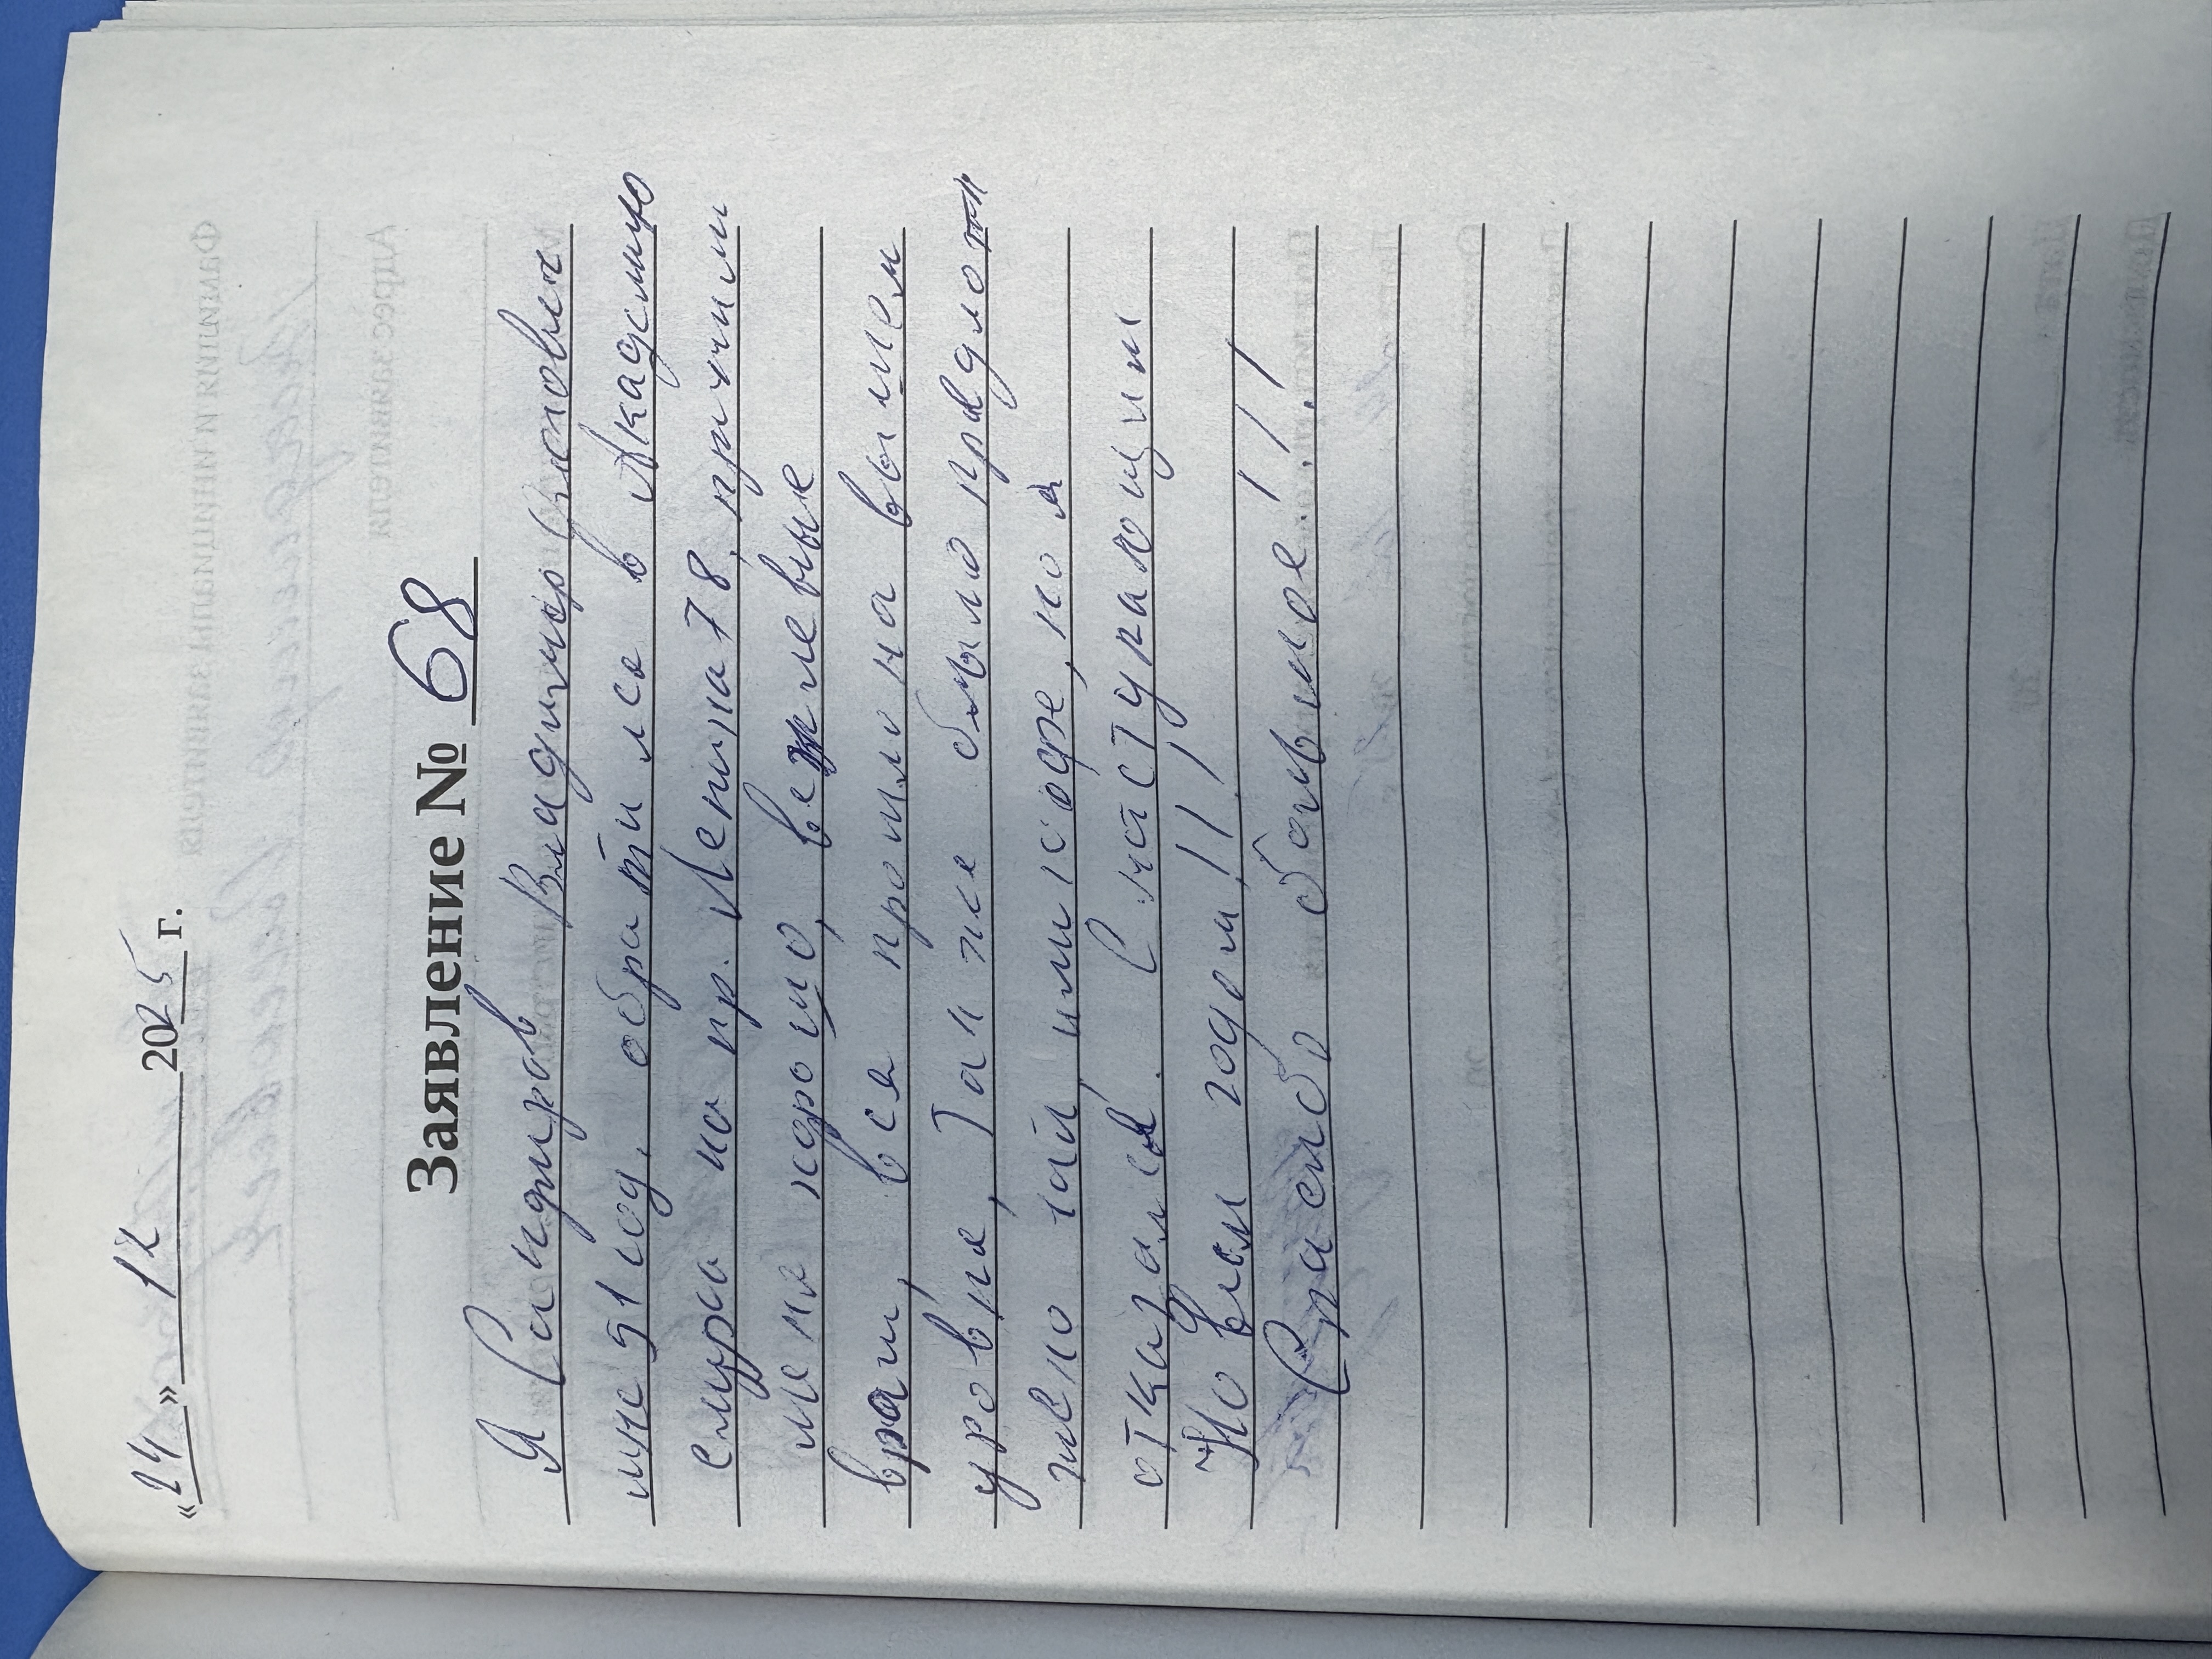 «24» 12 2025 г.
Заявление № 68
Я Сандиров Владимир
мне 51 год, обратился в Академию
слуха на пр. Ленина 78, приняли
меня хорошо, вежлевые
врач, все прошло на высшем
уровне, Так же было предлож
жено чай или кофе, но я
отказался. С наступающим
Новым годом!!!
Спасибо большое!!!